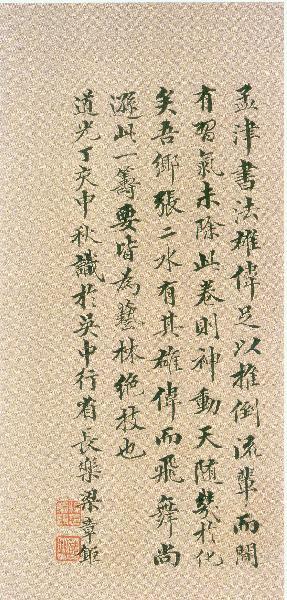 孟津書法雄偉足以推倒流輩而間
有習氣未除此卷則神動天隨幾於化
矣吾鄉張二水有其雄偉而飛舞尚
遜此一籌要皆為藝林絕技也
道光丁亥中秋識於吳中行省長樂梁章鉅